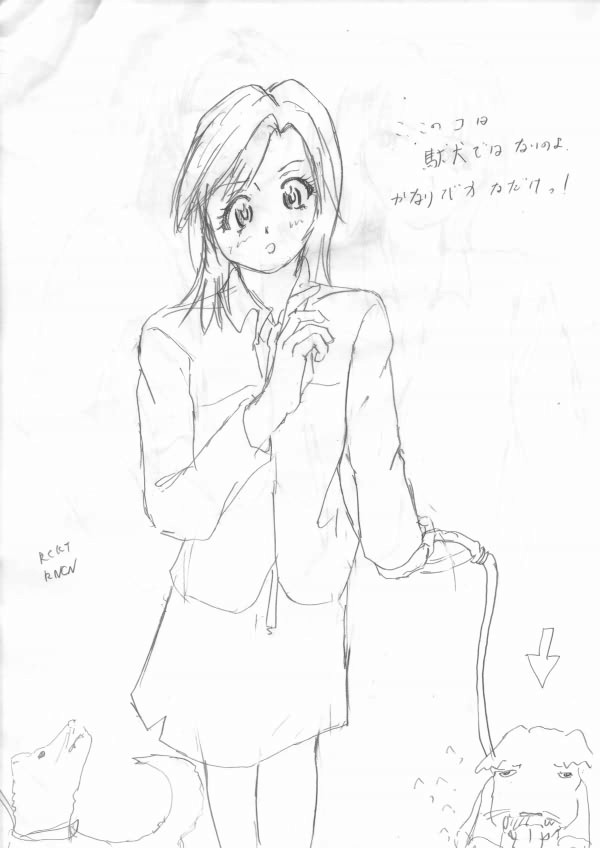 ここのコは
駄犬ではないのよ.
かなりバカなだけっ!
RCKT
RNCN